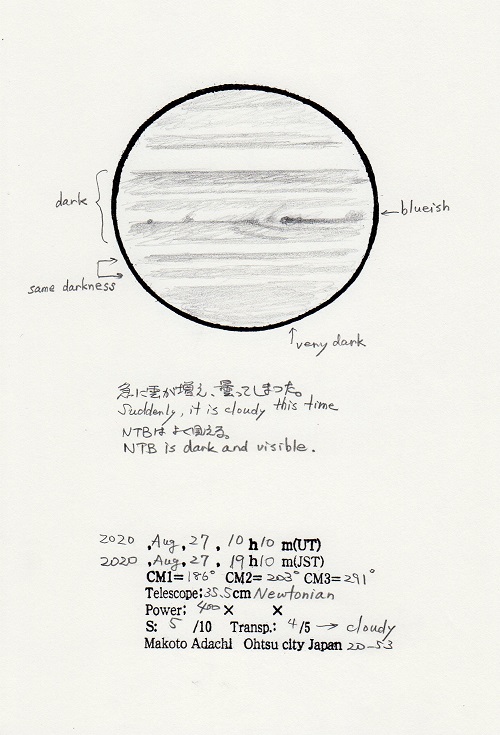 dark
blueish
same darkness
very dark
急に雲が増え、曇ってしまった。
Suddenly, it is cloudy this time
NTBはよく見える。
NTB is dark and visible.
2020 , Aug, 27, 10 h 10 m(UT)
2020 , Aug, 27, 19 h 10 m(JST)
CM1= 186° CM2= 203° CM3= 291°
Telescope: 35.5cm Newtonian
Power: 400× ×
S: 5 /10 Transp.: 4/5 → cloudy
Makoto Adachi Ohtsu city Japan 20-53